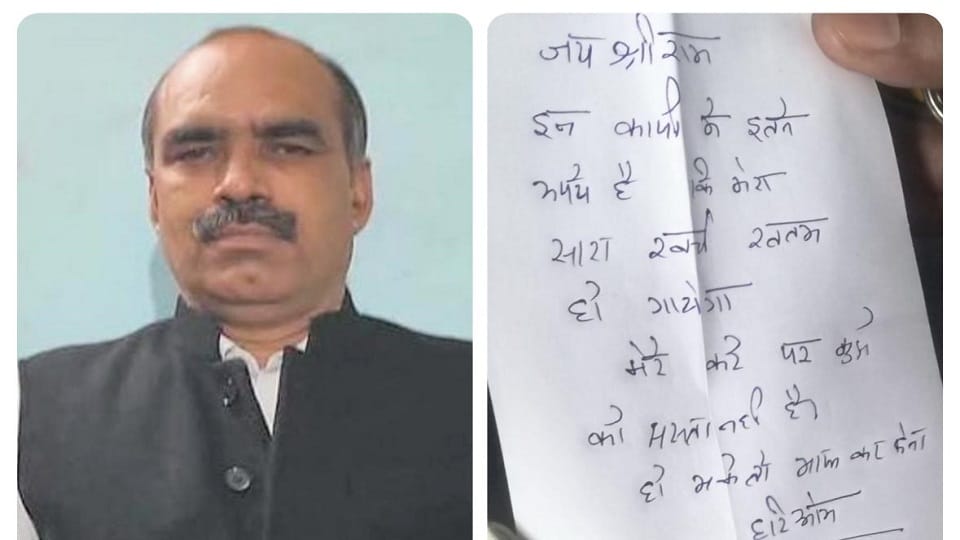 जय श्री राम
इन कापी मे इतने
रूपये है कि मेरा
सारा खर्चा खतम
हो जायेगा
मेरे करे पर कुसी
को नही है।
हो सके तो माफ कर देना
हरि ओम